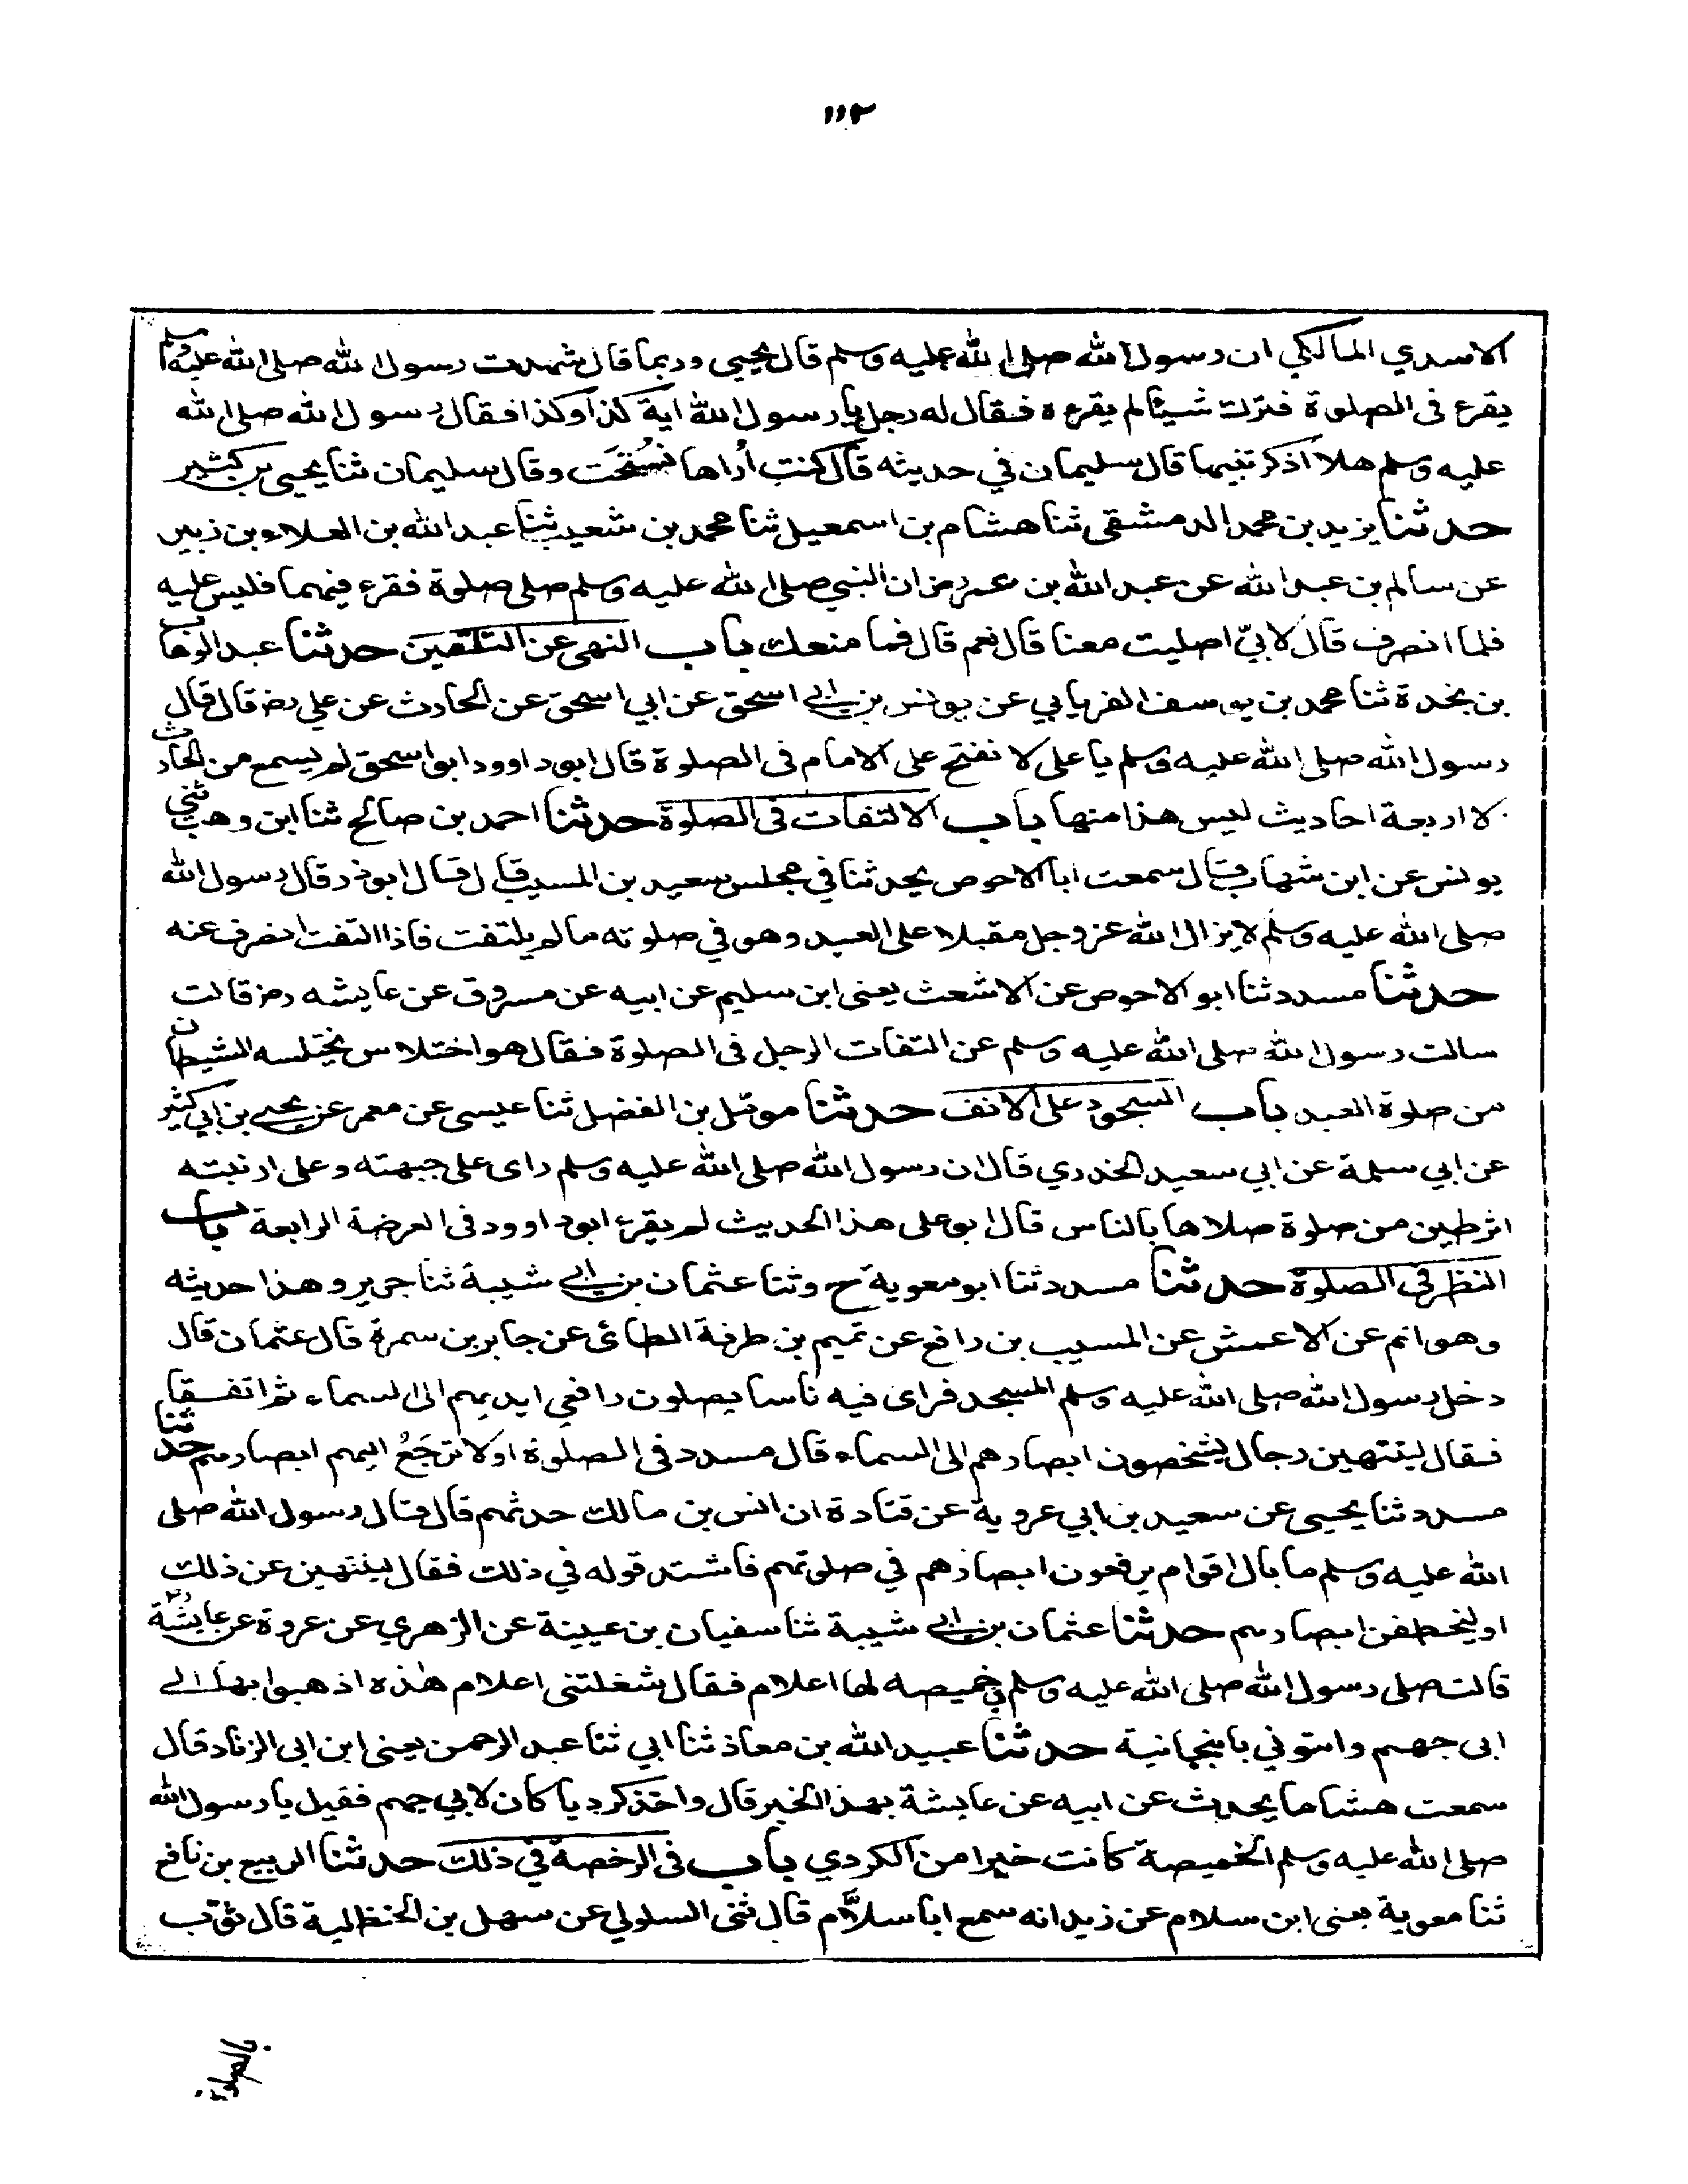 ١١٢
الاسدي المالكي ان رسول الله صلى الله عليه وسلم قال يحيى وربما قال شهدت رسول الله صلى الله عليه وسلم
يقرء فى الصلوة فترك شيئا لم يقرءه فقال له رجل يا رسول الله اية كذا وكذا فقال رسول الله صلى الله
عليه وسلم هلا اذكرتنيها قال سليمان في حديثه قال كنت أراها نُسِخَت وقال سليمان ثنا يحيى بن كثير
حدثنا يزيد بن محمد الدمشقى ثنا هشام بن اسمعيل ثنا محمد بن شعيب ثنا عبد الله بن العلاء بن زبير
عن سالم بن عبد الله عن عبد الله بن عمر رض ان النبي صلى الله عليه وسلم صلى صلوة فقرء فيهما فلبس عليه
فلما انصرف قال لابيّ اصليت معنا قال نعم قال فما منعك باب النهى عن التلقين حدثنا عبد الوهاب
بن نجدة ثنا محمد بن يوسف الفريابي عن يونس بن ابي اسحق عن ابي اسحق عن الحارث عن علي رضه قال قال
رسول الله صلى الله عليه وسلم يا على لا تفتح على الامام فى الصلوة قال ابو داوود ابو اسحق لم يسمع من الحارث
لا اربعة احاديث ليس هذا منها باب الالتفات فى الصلوة حدثنا احمد بن صالح ثنا ابن وهب ثنى
يونس عن ابن شهاب قال سمعت ابا الاحوص يحدثنا في مجلس سعيد بن المسيب قال قال ابو ذر قال رسول الله
صلى الله عليه وسلم لا يزال الله عز وجل مقبلا على العبد وهو في صلوته ما لم يلتفت فاذا التفت انصرف عنه
حدثنا مسدد ثنا ابو الاحوص عن الاشعث يعنى ابن سليم عن ابيه عن مسروق عن عايشه رض قالت
سالت رسول الله صلى الله عليه وسلم عن التفات الرجل فى الصلوة فقال هو اختلاس يختلسه الشيطان
من صلوة العبد باب السجود على الانف حدثنا مومل بن الفضل ثنا عيسى عن معمر عن يحيى بن ابي كثير
عن ابي سلمة عن ابي سعيد الخدري قال ان رسول الله صلى الله عليه وسلم راى على جبهته وعلى ارنبته
اثر طين من صلوة صلاها بالناس قال ابو على هذا الحديث لم يقرء ابو داوود فى العرضة الرابعة باب
النظر فى الصلوة حدثنا مسدد ثنا ابو معوية ح وثنا عثمان بن ابي شيبة ثنا جرير وهذا حديثه
وهو اتم عن الاعمش عن المسيب بن رافع عن تميم بن طرفة الطائ عن جابر بن سمرة قال عثمان قال
دخل رسول الله صلى الله عليه وسلم المسجد فراى فيه ناسا يصلون رافعي ايديهم الى السماء ثم اتفقا
فقال لينتهين رجال يشخصون ابصارهم الى السماء قال مسدد فى الصلوة اولا ترجَعُ اليهم ابصارهم حدثنا
مسدد ثنا يحيى عن سعيد بن ابي عروبة عن قتادة ان انس بن مالك حدثهم قال قال رسول الله صلى
الله عليه وسلم ما بال اقوام يرفعون ابصارهم في صلوتهم فاشتد قوله في ذلك فقال لينتهين عن ذلك
او ليخطفن ابصارهم حدثنا عثمان بن ابي شيبة ثنا سفيان بن عيينة عن الزهري عن عروة عن عايشة
قالت صلى رسول الله صلى الله عليه وسلم في خميصه لها اعلام فقال شغلتنى اعلام هذه اذهبوا بها الى
ابى جهم واتوني بانبجانية حدثنا عبيد الله بن معاذ ثنا ابي ثنا عبد الرحمن يعنى ابن ابى الزناد قال
سمعت هشاما يحدث عن ابيه عن عايشة بهذا الخبر قال واخذ كرديا كان لابي جهم فقيل يا رسول الله
صلى الله عليه وسلم الخميصة كانت خيرا من الكردي باب فى الرخصة في ذلك حدثنا الربيع بن نافع
ثنا معوية يعنى ابن سلام عن زيد انه سمع ابا سلاَّم قال ثنى السلولي عن سهل بن الحنظلية قال ثوّب
بالصلوة